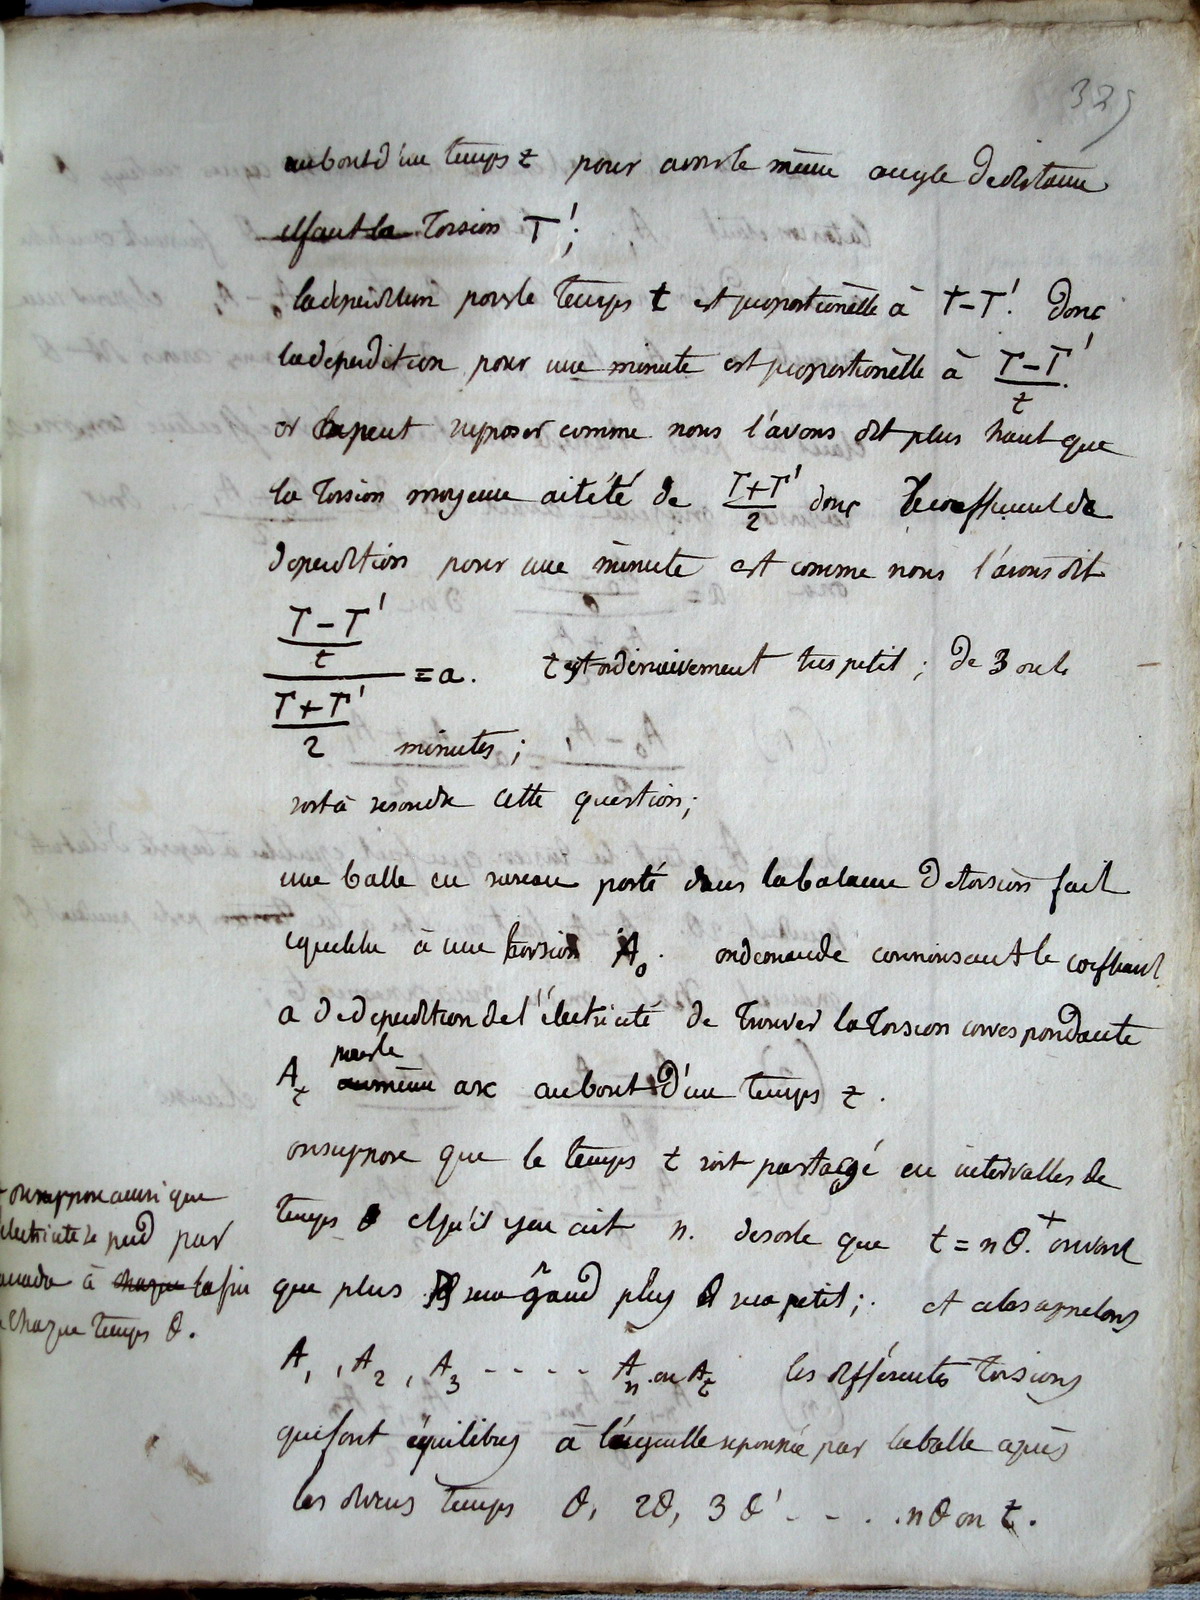 329
au bout d'un temps t pour avoir le même angle de distance
il faut la Torsion T';
la deperdition pour le temps t est proportionèlle à T-T'. donc
la deperdition pour une minute est proportionèlle à (T-T')/t.
or on peut supposer comme nous l'avons dit plus haut que
la Torsion moyenne ait été de (T+T')/2 donc le coefficient de
deperdition pour une minute est comme nous l'avons dit
((T-T')/t)/((T+T')/2) = a. t est ordinairement très petit; de 3 ou 4
minutes;
soit à resoudre cette question;
une balle en sureau porté dans la balance de torsion fait
equilibre à une torsion A₀. on demande connoissant le coefficient
a de deperdition de l'électricité de trouver la Torsion correspondante
Aₜ pour le au même arc au bout d'un temps t.
on suppose que le temps t soit partagé en intervalles de
temps θ et qu'il y en ait n. de sorte que t = nθ.⁺ on voit
que plus n sera grand plus θ sera petit;. et alors appelons
A₁, A₂, A₃ - - - - - Aₙ. ou Aₜ les différentes Torsions
qui font équilibres à l'aiguille repoussée par la balle après
les divers temps θ, 2θ, 3θ' - - . . nθ ou t.
+ on suppose aussi que
électricité se perd par
à chaque la fin
chaque temps θ.